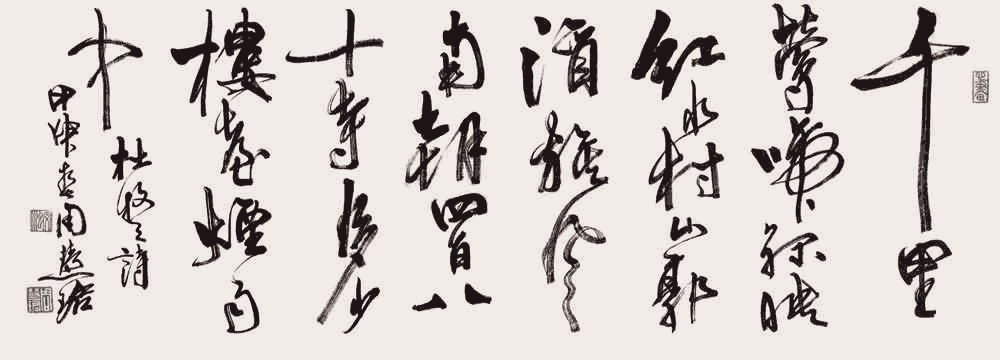 千里
鶯啼緑映
紅水村山郭
酒旗風
南朝四百八
十寺多少
樓臺煙雨
中
杜牧之詩
甲申春周慧珺